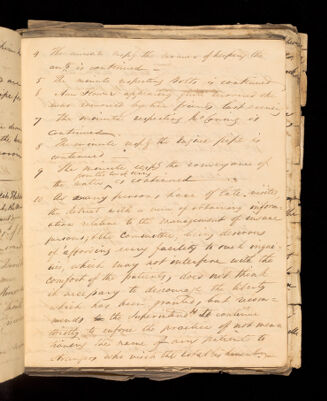 4 The minute resp.g the manner of keeping the
is continued
5 The minute respecting Bolts is continued
6 Ann appearing recovered she
was removed by her friends last
7 The minute respecting is
continued
8 The minute resp.g the engine pipe is
continued
9 The minute resp.g the conveyance of
the water is continued
10 As many persons have of late visited
the retreat with a view of obtaining inform
ation relative to the management of insane
persons, this Committee being desirous
of affording every facility to such inqui
ries, which may not interfere with the
comfort of the patients, does not think
it necessary to discourage the liberty
which has been granted, but recom-
mends to the Superintend.t to continue
strictly to enforce the practice of not men
tioning the name of any patient to
strangers who visit the